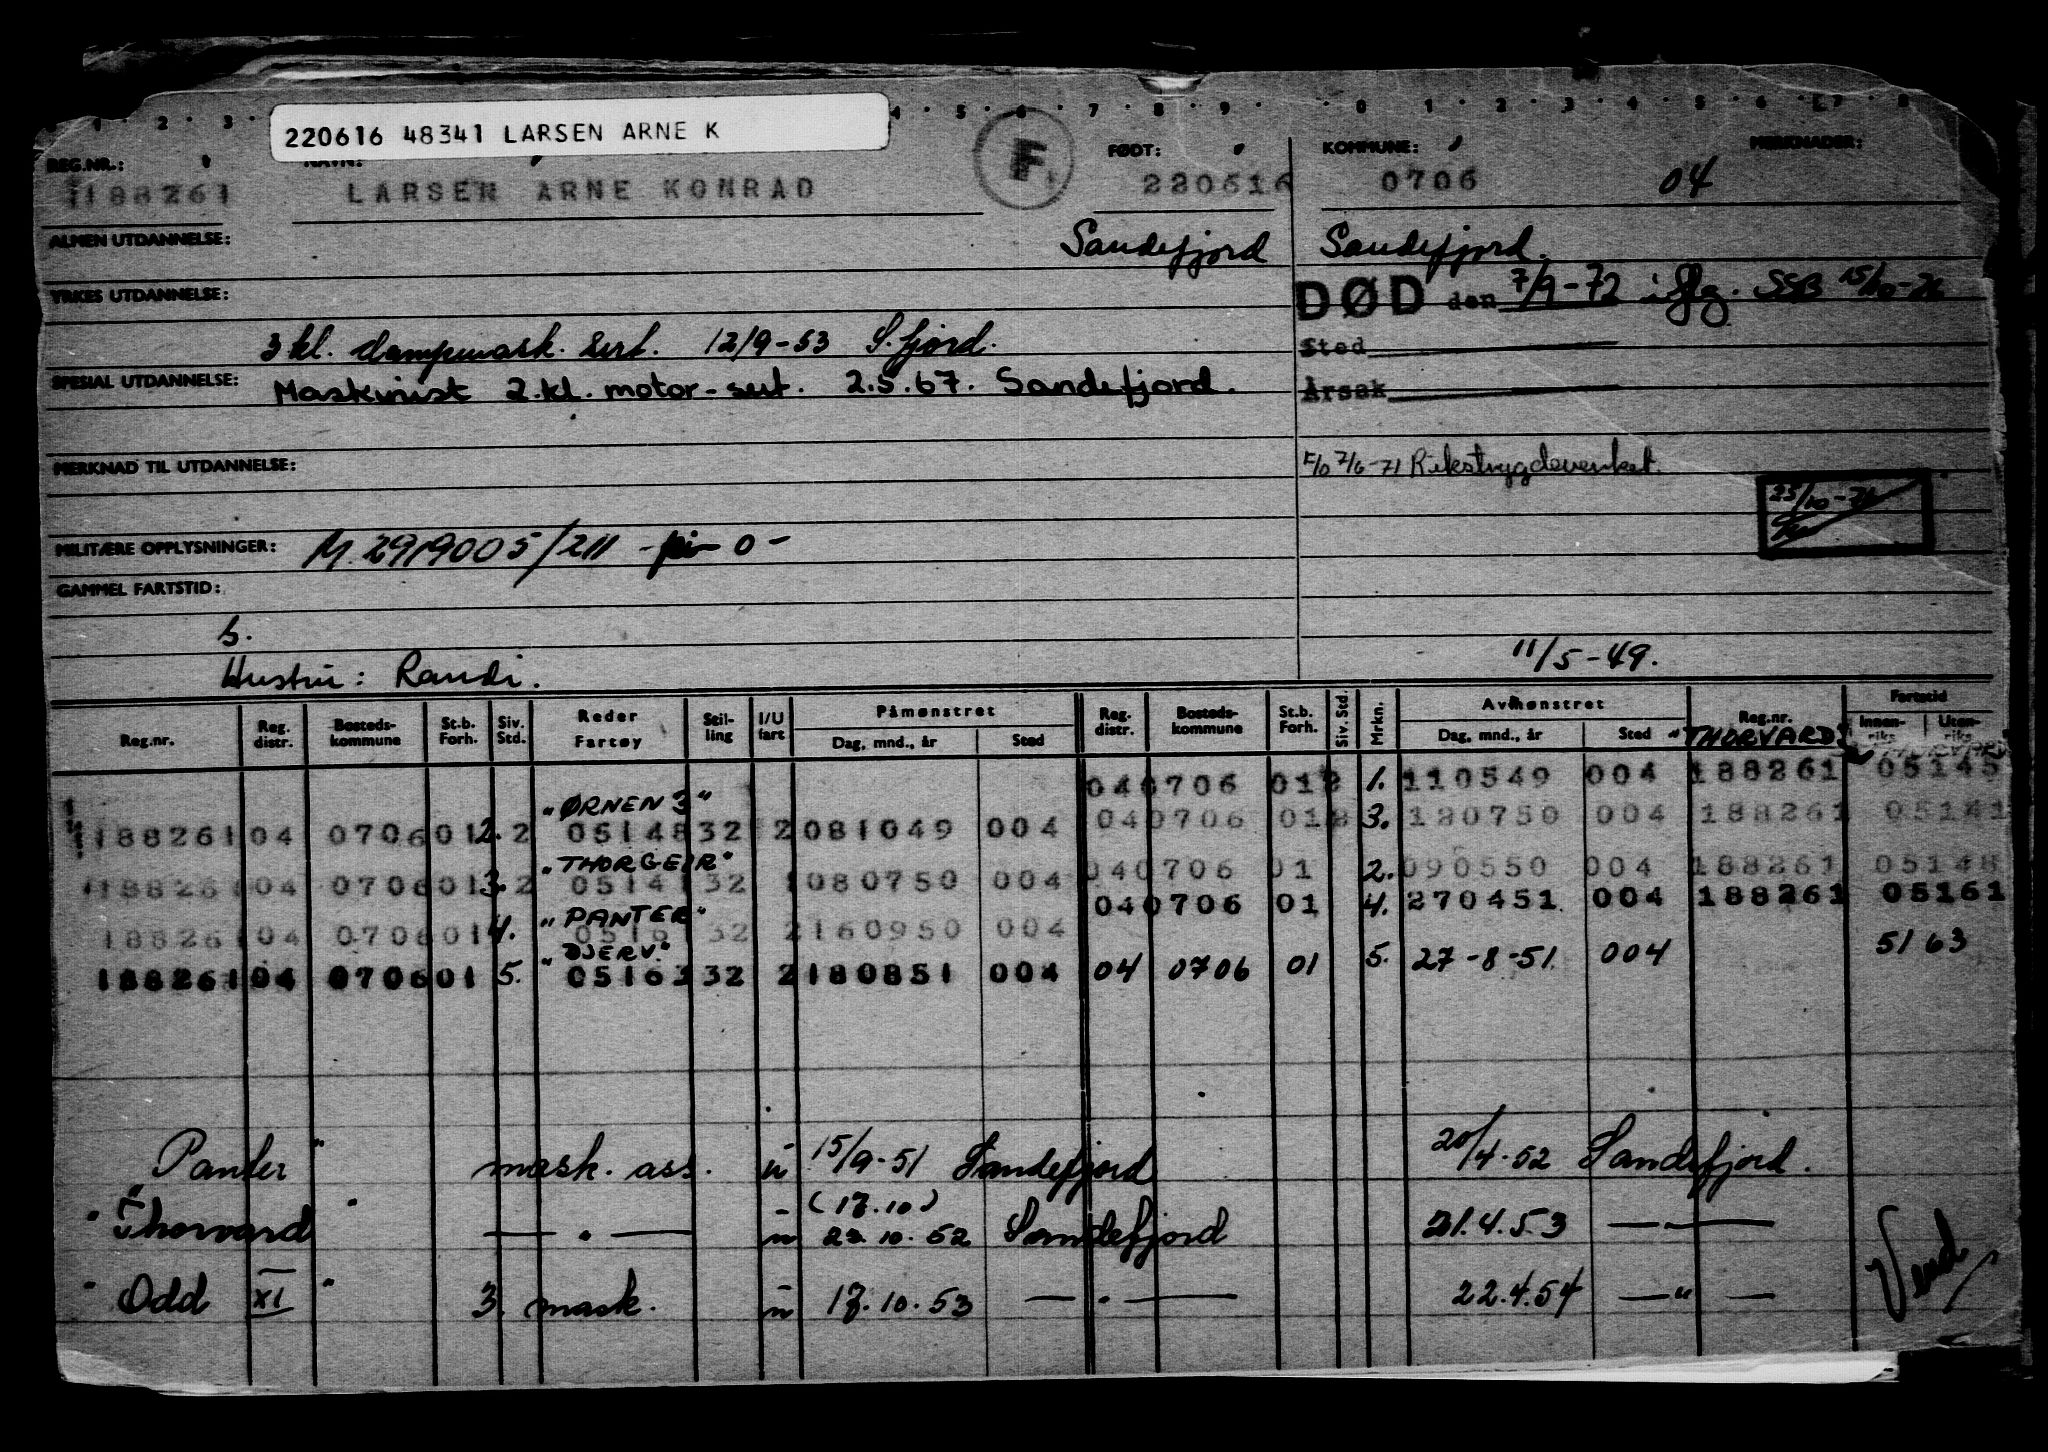 220616 48341 LARSEN ARNE K
REG.NR.: FØDT: KOMMUNE: MERKNADER:
188261 LARSEN ARNE KONRAD F 220616 0706 04
ALMEN UTDANNELSE: Sandefjord Sandefjord.
YRKES UTDANNELSE: DØD den 7/9-72 iflg. SSB
3 kl. dampmask. sert. 12/9-53 S.fjord. Sted
SPESIAL UTDANNELSE: Maskinist 2.kl. motor-sert. 2.5.67. Sandefjord. Årsak
MERKNAD TIL UTDANNELSE: F/O 7/6-71 Rikstrygdeverket.
MILITÆRE OPPLYSNINGER: M. 2919005/211 - 0 -
GAMMEL FARTSTID:
s.
Hustru: Randi. 11/5-49.
Reg.nr. Reg. distr. Bosteds- kommune St.b. Forh. Siv. Std. Reder Fartøy Stil- ling I/U fart Påmønstret Dag, mnd., år Sted Reg. distr. Bosteds- kommune St.b. Forh. Siv. Std. Mrkn. Avmønstret Dag, mnd., år Sted Reg.nr. Fartstid Innen- riks Uten- riks
"THORVARD"
04 0706 01 2 1. 110549 004 188261 05145
"ØRNEN 3"
188261 04 0706 01 2. 2 05148 32 2 081049 004 04 0706 01 3. 180750 004 188261 05141
"THORGEIR"
188261 04 0706 01 3. 2 05141 32 1 080750 004 04 0706 01 2. 090550 004 188261 05148
"PANTER"
188261 04 0706 01 4. 05161 32 2 160950 004 04 0706 01 4. 270451 004 188261 05161
"DJERV."
188261 04 0706 01 5. 05163 32 2 180851 004 04 0706 01 5. 27-8-51. 004 5163
"Panter" mask. ass. u 15/9-51 Sandefjord 20/4-52 Sandefjord.
(17.10)
"Thorvard" — " — u 23.10.52 Sandefjord 21.4.53 — " —
"Odd XI" 3. mask. u 17.10.53 — " — 22.4.54 — " —
Vend